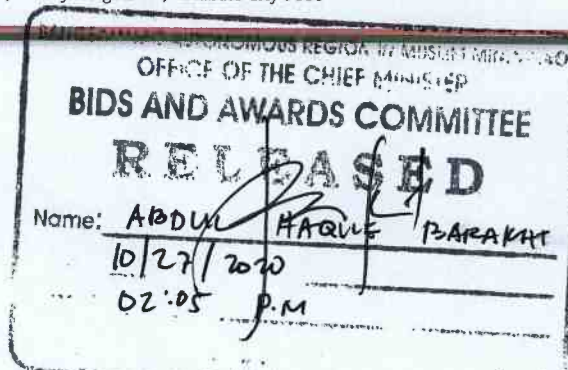 AUTONOMOUS REGION IN MUSLIM
OFFICE OF THE CHIEF MINISTER
BIDS AND AWARDS COMMITTEE
RELEASED
Name: ABDUL HAQUE BARAKAT
10/27/2020
02:05 P.M